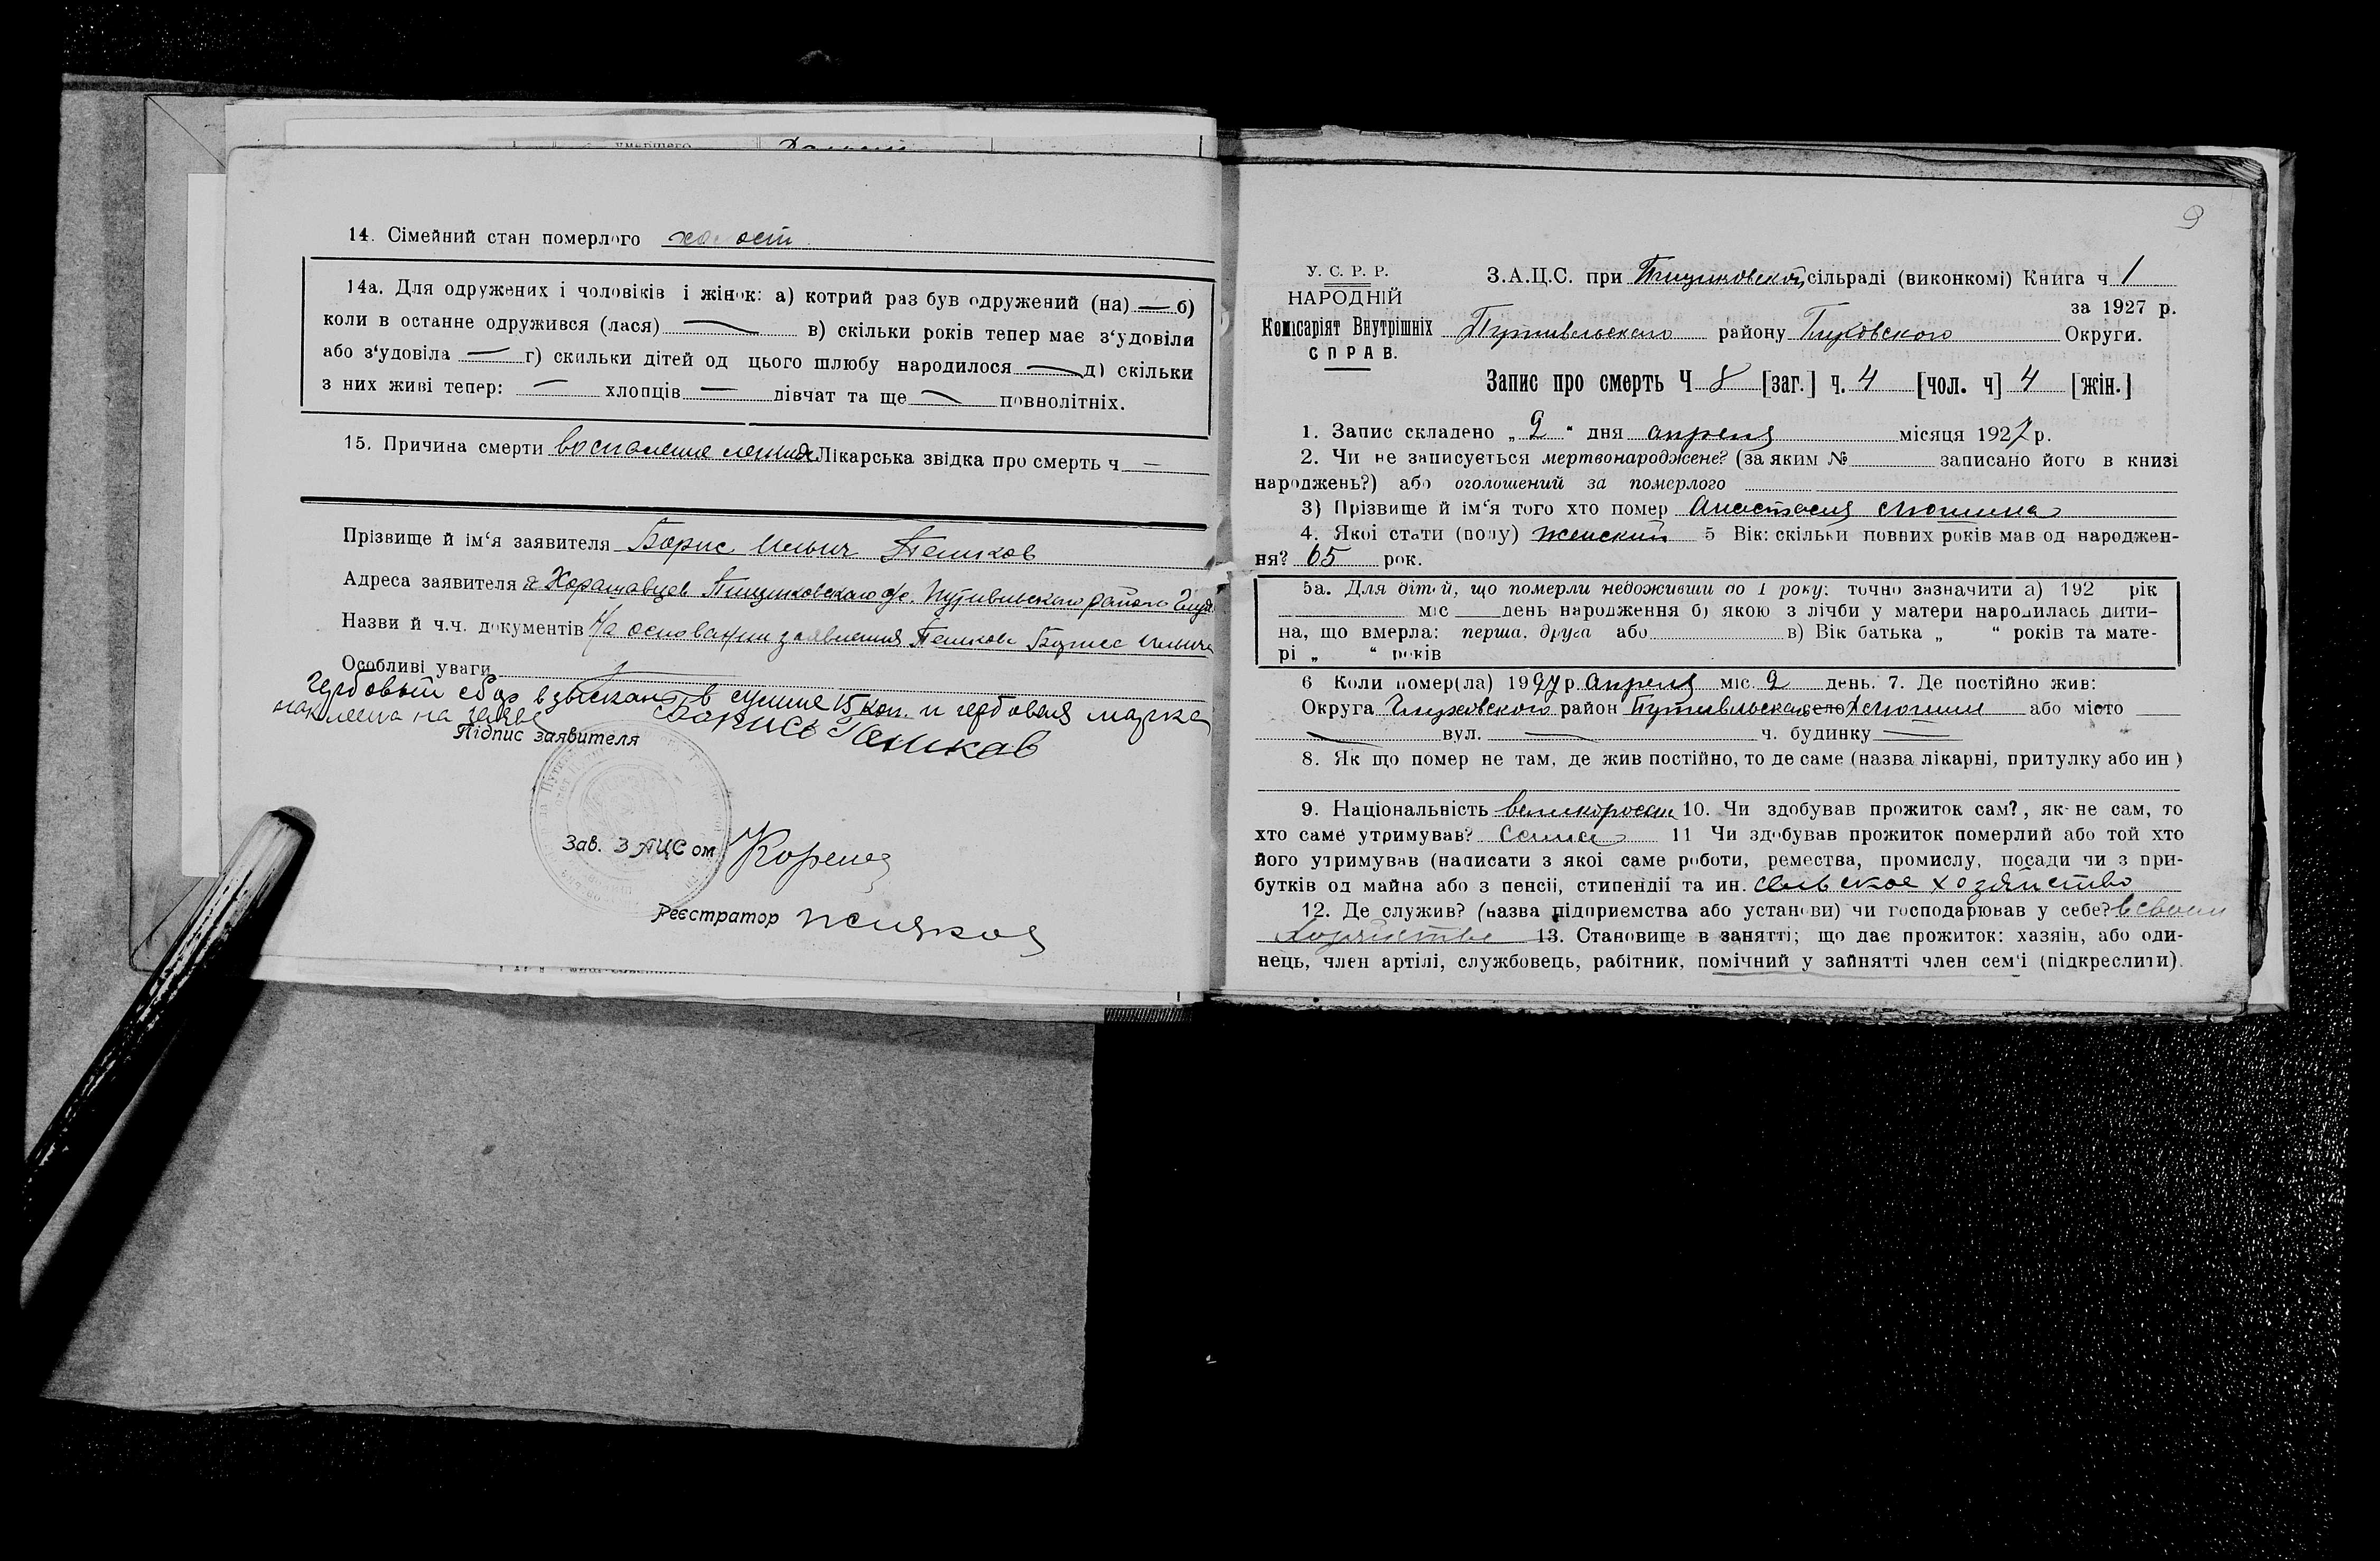 умершего
14. Сімейний стан померлого холост
14а. Для одружених і чоловіків і жінок: а) котрий раз був одружений (на) — б)
коли в останне одружився (лася) — в) скільки років тепер має з‘удовіли
або з‘удовіла — г) скильки дітей од цього шлюбу народилося — д) скільки
з них живі тепер: — хлопців — дівчат та ще — повнолітніх.
15. Причина смерти воспаление легких Лікарська звідка про смерть ч —
Прізвище й ім‘я заявителя Борис Ильич Пешков
Адреса заявителя Пищиковского с/с. Путивльского района Глух
Назви й ч.ч. документів На основании заявления Пешкова Бориса Ильича
Особливі уваги
Гербовый сбор взыскан в сумме 15 коп. и гербовая марка
наклеена на
Підпис заявителя
Зав. ЗАЦСом
Реєстратор
9
У. С. Р. Р.
НАРОДНІЙ
Комісаріят Внутрішніх
СПРАВ.
З.А.Ц.С. при сільраді (виконкомі) Книга ч 1
за 1927 р.
Путивльского району Глуховского Округи.
Запис про смерть Ч 8 [заг.] ч. 4 [чол. ч] 4 [жін.]
1. Запис складено „ 2 “ дня апреля місяця 1927 р.
2. Чи не записується мертвонароджене? (за яким № записано його в книзі
народжень?) або оголошений за померлого
3) Прізвище й ім‘я того хто помер Анастасия
4. Якої стати (полу) женский 5 Вік: скільки повних років мав од народжен-
ня? 65 рок.
5а. Для дітей, що померли недоживши до 1 року: точно зазначити а) 192 рік
міс день народження б) якою з лічби у матери народилась дити-
на, що вмерла: перша, друга або в) Вік батька „ “ років та мате-
рі „ “ років
6 Коли помер(ла) 1927 р. апреля міс. 2 день. 7. Де постійно жив:
Округа Глуховского район Путивльска село або місто —
— вул. — ч. будинку —
8. Як що помер не там, де жив постійно, то де саме (назва лікарні, притулку або ин )
9. Національність 10. Чи здобував прожиток сам?, як-не сам, то
хто саме утримував? сама 11 Чи здобував прожиток померлий або той хто
його утримував (написати з якої саме роботи, ремества, промислу, посади чи з при-
бутків од майна або з пенсії, стипендії та ин. сельское хозяйство
12. Де служив? (назва підприємства або установи) чи господарював у себе? в своем
хозяйстве 13. Становище в занятті; що дає прожиток: хазяін, або оди-
нець, член артілі, службовець, рабітник, помічний у зайнятті член сем‘ї (підкреслити).